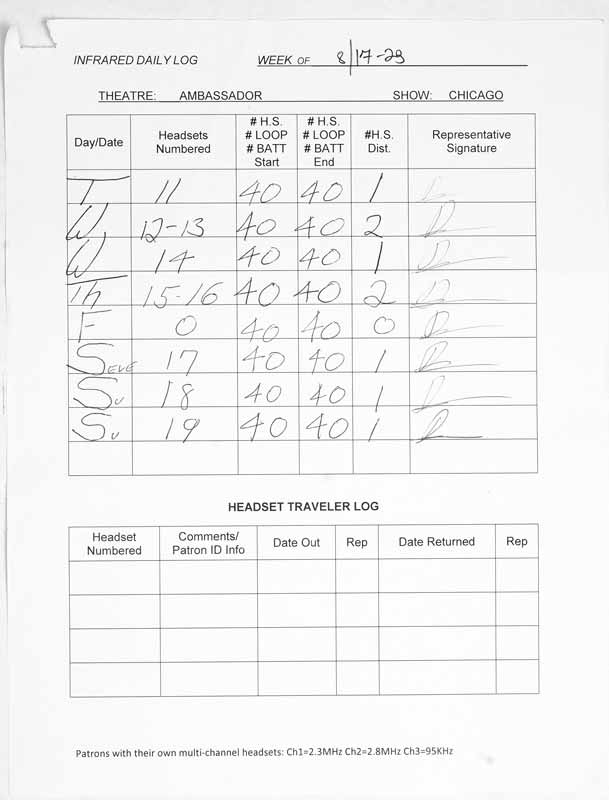 INFRARED DAILY LOG WEEK OF 8/17-23
THEATRE: AMBASSADOR SHOW: CHICAGO
Day/Date Headsets Numbered # H.S. # LOOP # BATT Start # H.S. # LOOP # BATT End #H.S. Dist. Representative Signature
T 11 40 40 1
W, 12-13 40 40 2
W 14 40 40 1
Th 15-16 40 40 2
F 0 40 40 0
S EVE 17 40 40 1
Su 18 40 40 1
Su 19 40 40 1
HEADSET TRAVELER LOG
Headset Numbered Comments/ Patron ID Info Date Out Rep Date Returned Rep
Patrons with their own multi-channel headsets: Ch1=2.3MHz Ch2=2.8MHz Ch3=95KHz